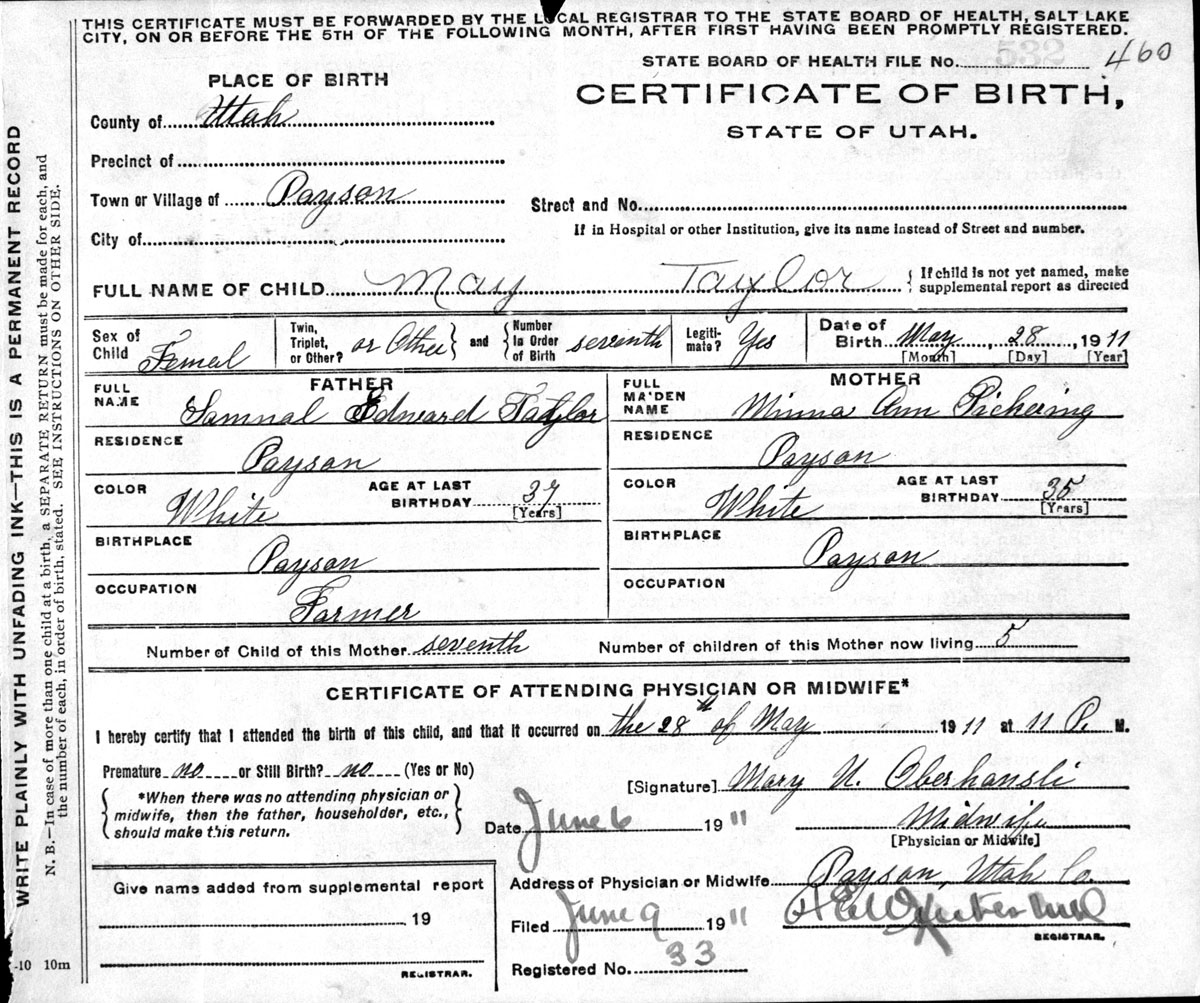 THIS CERTIFICATE MUST BE FORWARDED BY THE LOCAL REGISTRAR TO THE STATE BOARD OF HEALTH, SALT LAKE
CITY, ON OR BEFORE THE 5TH OF THE FOLLOWING MONTH, AFTER FIRST HAVING BEEN PROMPTLY REGISTERED.
STATE BOARD OF HEALTH FILE No. 532 460
PLACE OF BIRTH
CERTIFICATE OF BIRTH,
STATE OF UTAH.
County of Utah
Precinct of
Town or Village of Payson
Street and No.
City of
If in Hospital or other Institution, give its name instead of Street and number.
FULL NAME OF CHILD May Taylor { If child is not yet named, make
supplemental report as directed
Sex of Child Femal
Twin, Triplet, or Other? or Other } and { Number In Order of Birth seventh
Legiti-mate? Yes
Date of Birth May, 28, 1911
[Month] [Day] [Year]
FATHER
FULL NAME Samnal Edward Taylor
MOTHER
FULL MAIDEN NAME Minna Ann Pickering
RESIDENCE Payson
RESIDENCE Payson
COLOR White AGE AT LAST BIRTHDAY 37 [Years]
COLOR White AGE AT LAST BIRTHDAY 35 [Years]
BIRTHPLACE Payson
BIRTHPLACE Payson
OCCUPATION Farmer
OCCUPATION
Number of Child of this Mother seventh Number of children of this Mother now living 5
CERTIFICATE OF ATTENDING PHYSICIAN OR MIDWIFE*
I hereby certify that I attended the birth of this child, and that it occurred on the 28th of May 1911 at 11 P. M.
Premature no or Still Birth? no (Yes or No)
[Signature] Mary U. Oberhansli
{ *When there was no attending physician or
midwife, then the father, householder, etc.,
should make this return. }
Date June 6 1911
Midwife
[Physician or Midwife]
Give name added from supplemental report
19
REGISTRAR.
Address of Physician or Midwife Payson, Utah Co.
Filed June 9 1911
REGISTRAR.
Registered No. 33
WRITE PLAINLY WITH UNFADING INK—THIS IS A PERMANENT RECORD
N. B.—In case of more than one child at a birth, a SEPARATE RETURN must be made for each, and
the number of each, in order of birth, stated. SEE INSTRUCTIONS ON OTHER SIDE.
-10 10m